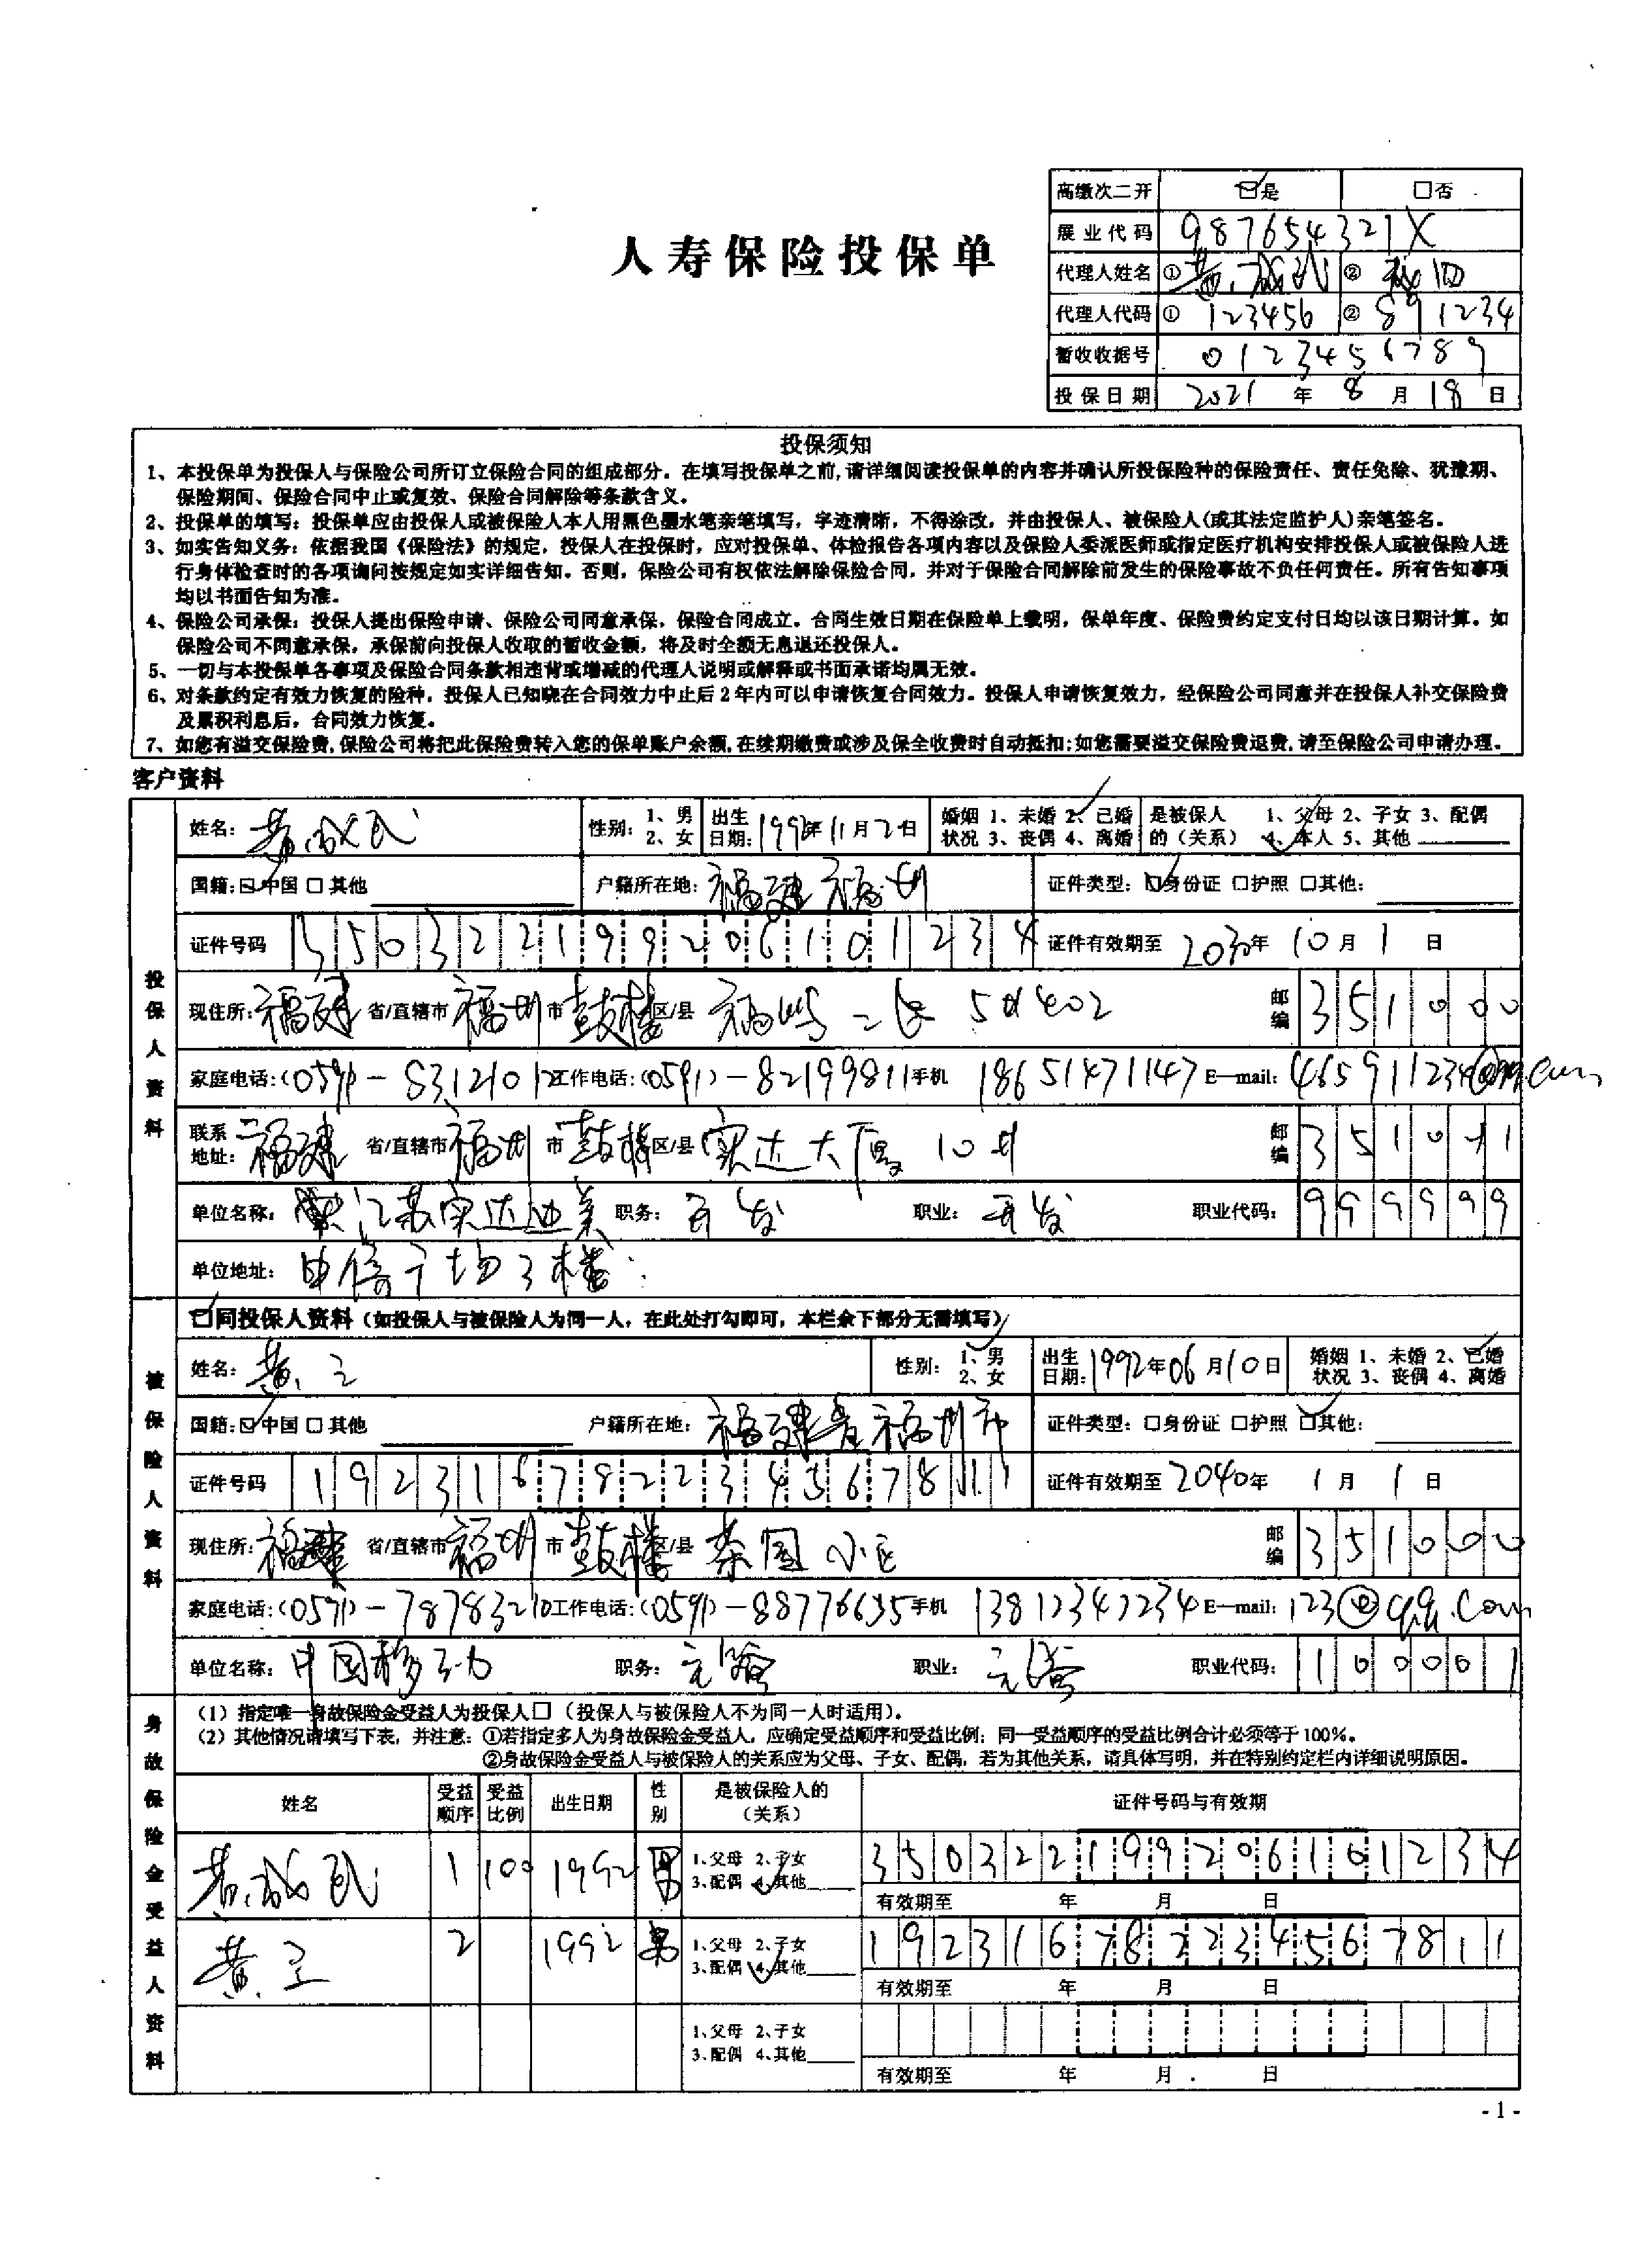 高缴次二开 ☑是 □否
人寿保险投保单
展业代码 987654321X
代理人姓名 ① 黄成武 ②
代理人代码 ① 123456 ② 891234
暂收收据号 0123456789
投保日期 2021 年 8 月 18 日
投保须知
1、本投保单为投保人与保险公司所订立保险合同的组成部分。在填写投保单之前,请详细阅读投保单的内容并确认所投保险种的保险责任、责任免除、犹豫期、
保险期间、保险合同中止或复效、保险合同解除等条款含义。
2、投保单的填写：投保单应由投保人或被保险人本人用黑色墨水笔亲笔填写，字迹清晰，不得涂改，并由投保人、被保险人(或其法定监护人)亲笔签名。
3、如实告知义务：依据我国《保险法》的规定，投保人在投保时，应对投保单、体检报告各项内容以及保险人委派医师或指定医疗机构安排投保人或被保险人进
行身体检查时的各项询问按规定如实详细告知。否则，保险公司有权依法解除保险合同，并对于保险合同解除前发生的保险事故不负任何责任。所有告知事项
均以书面告知为准。
4、保险公司承保：投保人提出保险申请、保险公司同意承保，保险合同成立。合同生效日期在保险单上载明，保单年度、保险费约定支付日均以该日期计算。如
保险公司不同意承保，承保前向投保人收取的暂收金额，将及时全额无息退还投保人。
5、一切与本投保单各事项及保险合同条款相违背或增减的代理人说明或解释或书面承诺均属无效。
6、对条款约定有效力恢复的险种，投保人已知晓在合同效力中止后 2 年内可以申请恢复合同效力。投保人申请恢复效力，经保险公司同意并在投保人补交保险费
及累积利息后，合同效力恢复。
7、如您有溢交保险费,保险公司将把此保险费转入您的保单账户余额,在续期缴费或涉及保全收费时自动抵扣;如您需要溢交保险费退费,请至保险公司申请办理。
客户资料
投保人资料
姓名： 黄成武 性别： 1、男 2、女 出生日期： 1992年11月2日 婚姻状况 1、未婚 2、已婚 3、丧偶 4、离婚 是被保人的（关系） 1、父母 2、子女 3、配偶 4、本人 5、其他
国籍：☑中国 □其他 户籍所在地： 福建福州 证件类型：☑身份证 □护照 □其他：
证件号码 350322199206101234 证件有效期至 2030年 10 月 1 日
现住所： 福建 省/直辖市 福州 市 鼓楼 区/县 邮编 351000
家庭电话：(0591)-8312101 工作电话：(0591)-82199811 手机 18651471147 E—mail:
联系地址： 福建 省/直辖市 福州 市 鼓楼 区/县 实达大厦 10 邮编 351011
单位名称： 江苏实达迪美 职务： 开发 职业： 开发 职业代码： 999999
单位地址： 中信广场3楼
被保险人资料
☑同投保人资料（如投保人与被保险人为同一人，在此处打勾即可，本栏余下部分无需填写）
姓名： 黄三 性别： 1、男 2、女 出生日期： 1992年06月10日 婚姻状况 1、未婚 2、已婚 3、丧偶 4、离婚
国籍：☑中国 □其他 户籍所在地： 福建省福州市 证件类型：□身份证 □护照 ☑其他：
证件号码 192316782234567811 证件有效期至 2040年 1 月 1 日
现住所： 福建 省/直辖市 福州 市 鼓楼 区/县 茶园小区 邮编 351000
家庭电话：(0591)-78783210 工作电话：(0591)-88776655 手机 13812341234 E—mail: 123@qq.com
单位名称： 中国移动 职务： 职业： 职业代码： 100001
身故保险金受益人资料
（1）指定唯一身故保险金受益人为投保人□（投保人与被保险人不为同一人时适用）。
（2）其他情况请填写下表，并注意：①若指定多人为身故保险金受益人，应确定受益顺序和受益比例；同一受益顺序的受益比例合计必须等于 100%。
②身故保险金受益人与被保险人的关系应为父母、子女、配偶，若为其他关系，请具体写明，并在特别约定栏内详细说明原因。
姓名 受益顺序 受益比例 出生日期 性别 是被保险人的（关系） 证件号码与有效期
黄成武 1 100 1992 男 1、父母 2、子女 3、配偶 4、其他 350322199206101234
有效期至 年 月 日
黄三 2 1992 男 1、父母 2、子女 3、配偶 4、其他 192316782234567811
有效期至 年 月 日
1、父母 2、子女 3、配偶 4、其他
有效期至 年 月 日
- 1 -